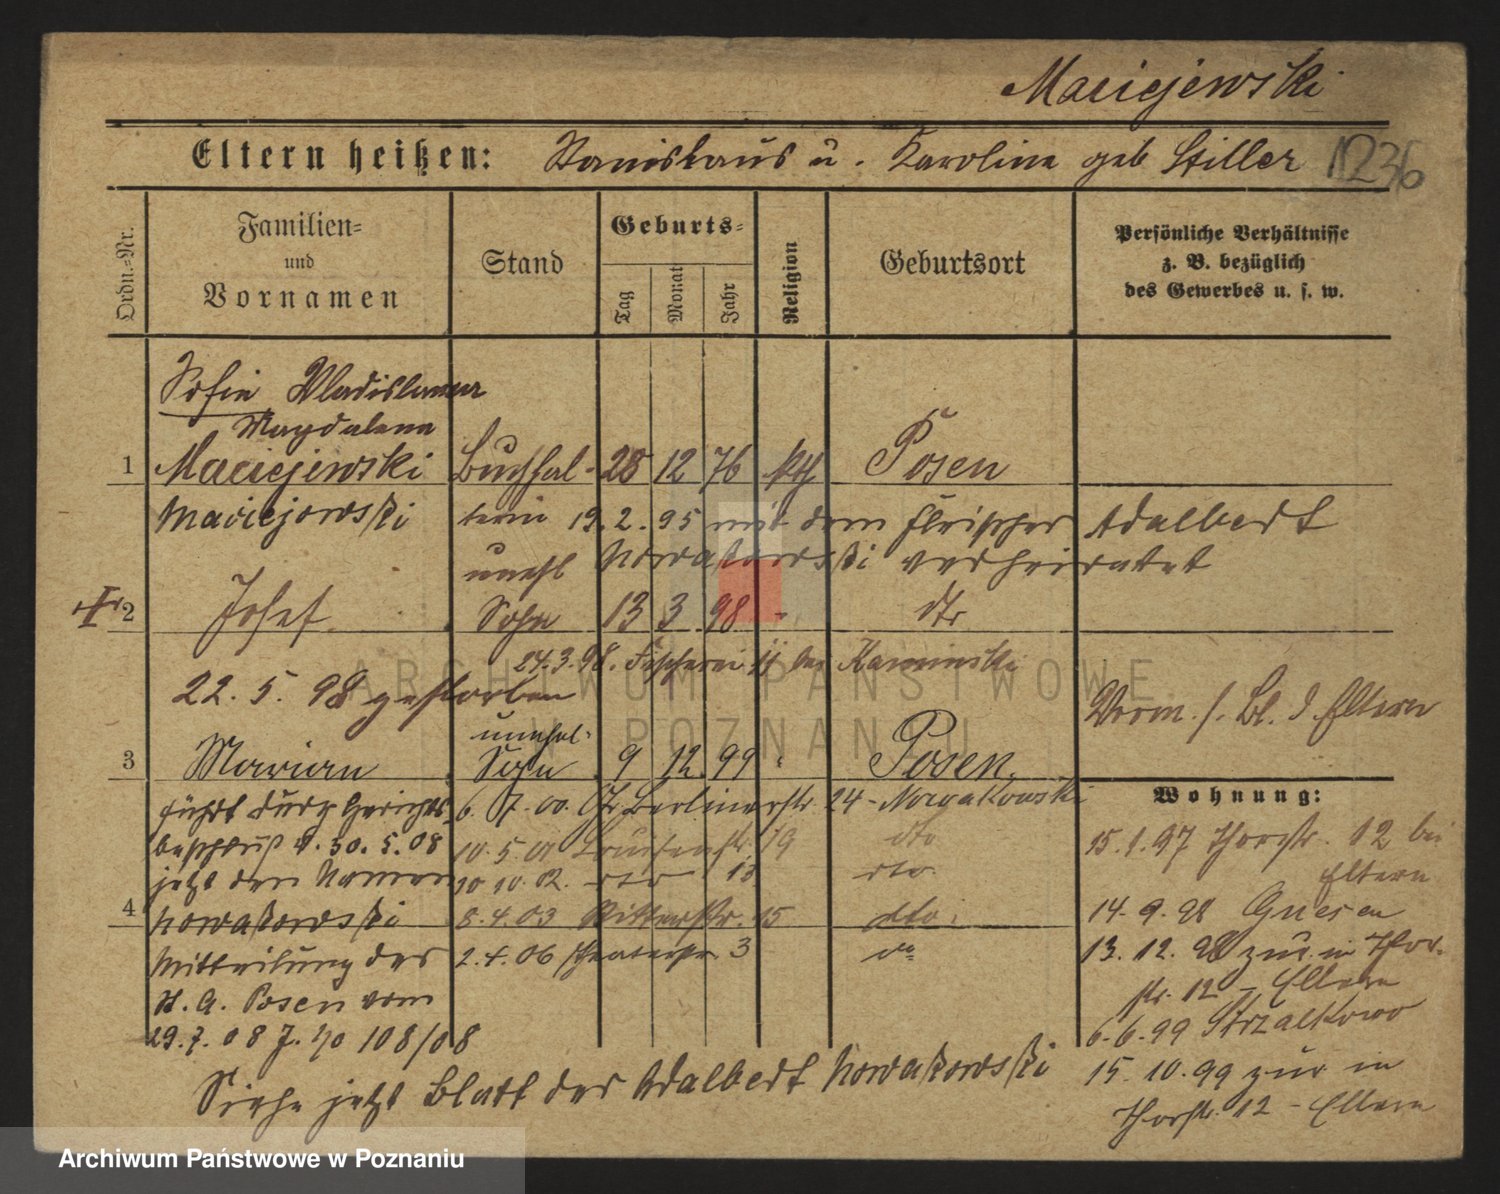 Maciejewski
Eltern heißen: Stanislaus u. Karoline geb Stiller 1236
Ordn.-Nr.
Familien-
und
Vornamen
Stand
Geburts-
Tag
Monat
Jahr
Religion
Geburtsort
Persönliche Verhältnisse
z. B. bezüglich
des Gewerbes u. s. w.
Sofie Wladislawa
Magdalena
1 Maciejewski Buchhal- 28 12 76 kth Posen
Maciejowski terin 19. 2. 95 mit dem Fleischer Adalbert
unehl Nowakowski verheiratet
2 Josef Sohn 13 3 98 - dto
24.3.98. Fischerei 11 bei Kaminski
22. 5. 98 gestorben
Vorm. s. Bl. d Eltern
unehel.
3 Marian Sohn 9 12. 99 Posen.
führt durch Gerichts-
beschluß v. 30. 5. 08
jetzt den Namen
4 Nowakowski
Mitteilung des
St. A. Posen vom
29. 7. 08 J. No 108/08
6. 7. 00. Gr Berlinerstr. 24 - Nowakowski
10. 5. 01 Louisenstr. 19 dto
10 10. 02. dto 13 dto
8. 4. 03 Ritterstr. 15 dto.
2. 4. 06 Theaterstr. 3 do
Wohnung:
15. 1. 97 Thorstr. 12 bei
Eltern
14. 9. 98 Gnesen
13. 12. 98 zur. in Thor-
str. 12 - Eltern
6. 6. 99 Strzalkowo
15. 10. 99 zur in
Thorstr. 12 - Eltern
Siehe jetzt Blatt des Adalbert Nowakowski
ARCHIWUM PAŃSTWOWE
W POZNANIU
Archiwum Państwowe w Poznaniu